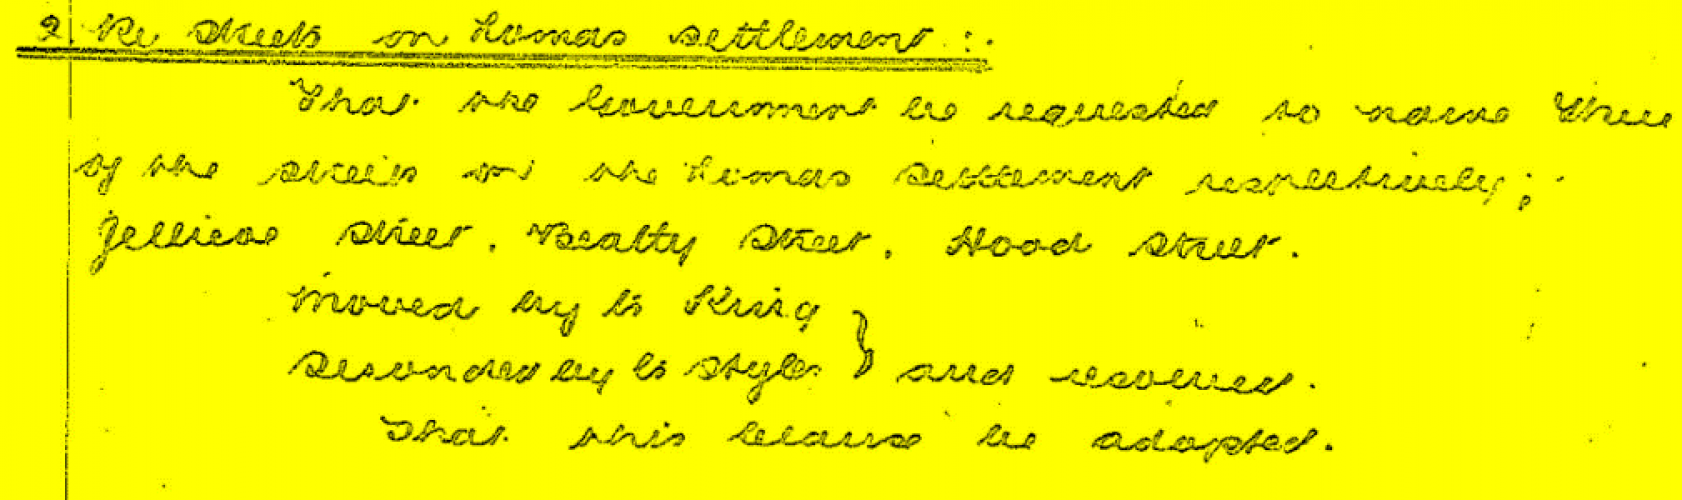 2 Re Streets on Lomas settlement :.
That the Government be requested to name three
of the streets on the Lomas Settlement respectively;
Jellicoe Street, Beatty Street, Hood Street.
Moved by Cr King
Seconded by Cr Styles } and resolved.
That this clause be adopted.